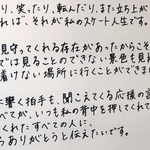 り、笑ったり、転んだり、また立ち上が
れば、それが私のスケート人生です。
見守ってくれる存在があったからこそ
では見ることのできない景色も見れ
着けない場所に行くことができま
に響く拍手も、聞こえてくる応援の
べてが、いつも私の背中を押してくれて
くれたすべての人に、
らありがとうと伝えたいです。